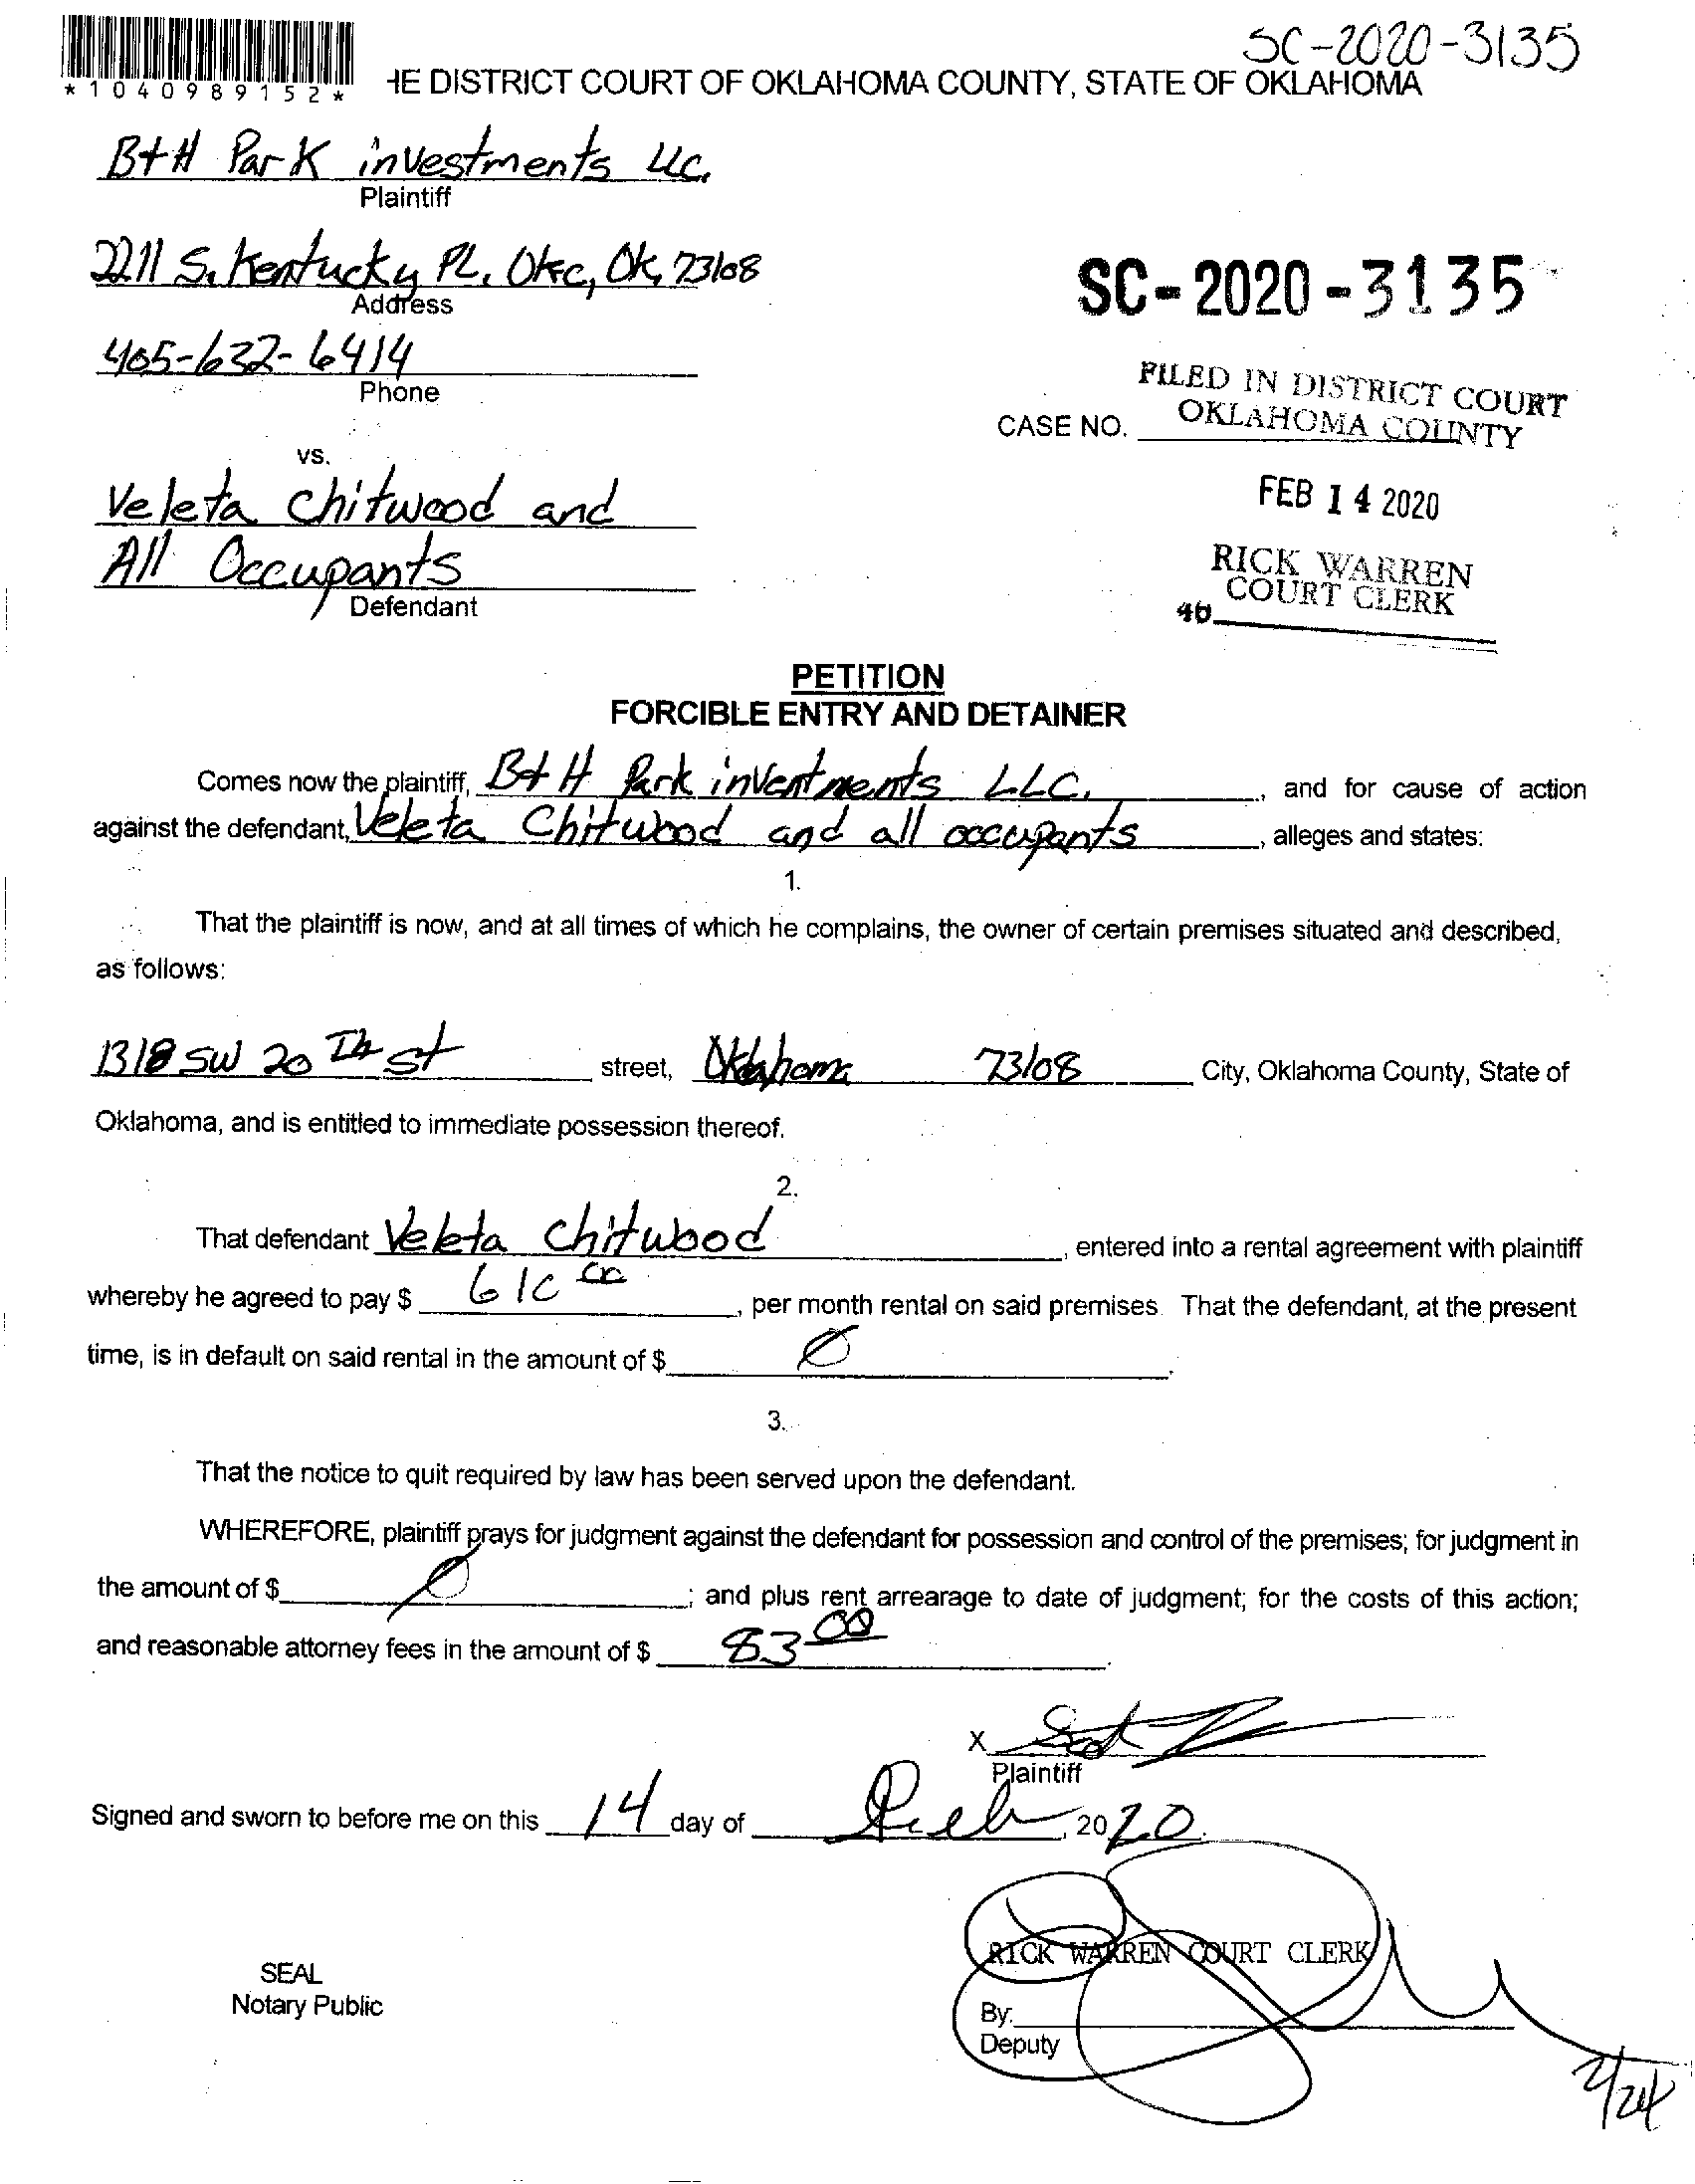 SC-2020-3135
*1040989152*
HE DISTRICT COURT OF OKLAHOMA COUNTY, STATE OF OKLAHOMA
B+H Park investments LLC.
Plaintiff
2211 S. Kentucky PL. Okc, Ok, 73108
Address
SC-2020-3135
405-632-6414
Phone
FILED IN DISTRICT COURT
OKLAHOMA COUNTY
CASE NO.
vs.
Veleta Chitwood and
FEB 14 2020
All Occupants
Defendant
RICK WARREN
COURT CLERK
40
PETITION
FORCIBLE ENTRY AND DETAINER
Comes now the plaintiff, B+H Park investments LLC. , and for cause of action
against the defendant, Veleta Chitwood and all occupants , alleges and states:
1.
That the plaintiff is now, and at all times of which he complains, the owner of certain premises situated and described,
as follows:
1318 SW 20 Th St street, Oklahoma 73108 City, Oklahoma County, State of
Oklahoma, and is entitled to immediate possession thereof.
2.
That defendant Veleta Chitwood , entered into a rental agreement with plaintiff
whereby he agreed to pay $ 610 00 , per month rental on said premises. That the defendant, at the present
time, is in default on said rental in the amount of $ Ø .
3.
That the notice to quit required by law has been served upon the defendant.
WHEREFORE, plaintiff prays for judgment against the defendant for possession and control of the premises; for judgment in
the amount of $ Ø ; and plus rent arrearage to date of judgment; for the costs of this action;
and reasonable attorney fees in the amount of $ 83 00 .
X
Plaintiff
Signed and sworn to before me on this 14 day of Feb , 2020.
RICK WARREN COURT CLERK
SEAL
Notary Public
By:
Deputy
2/24